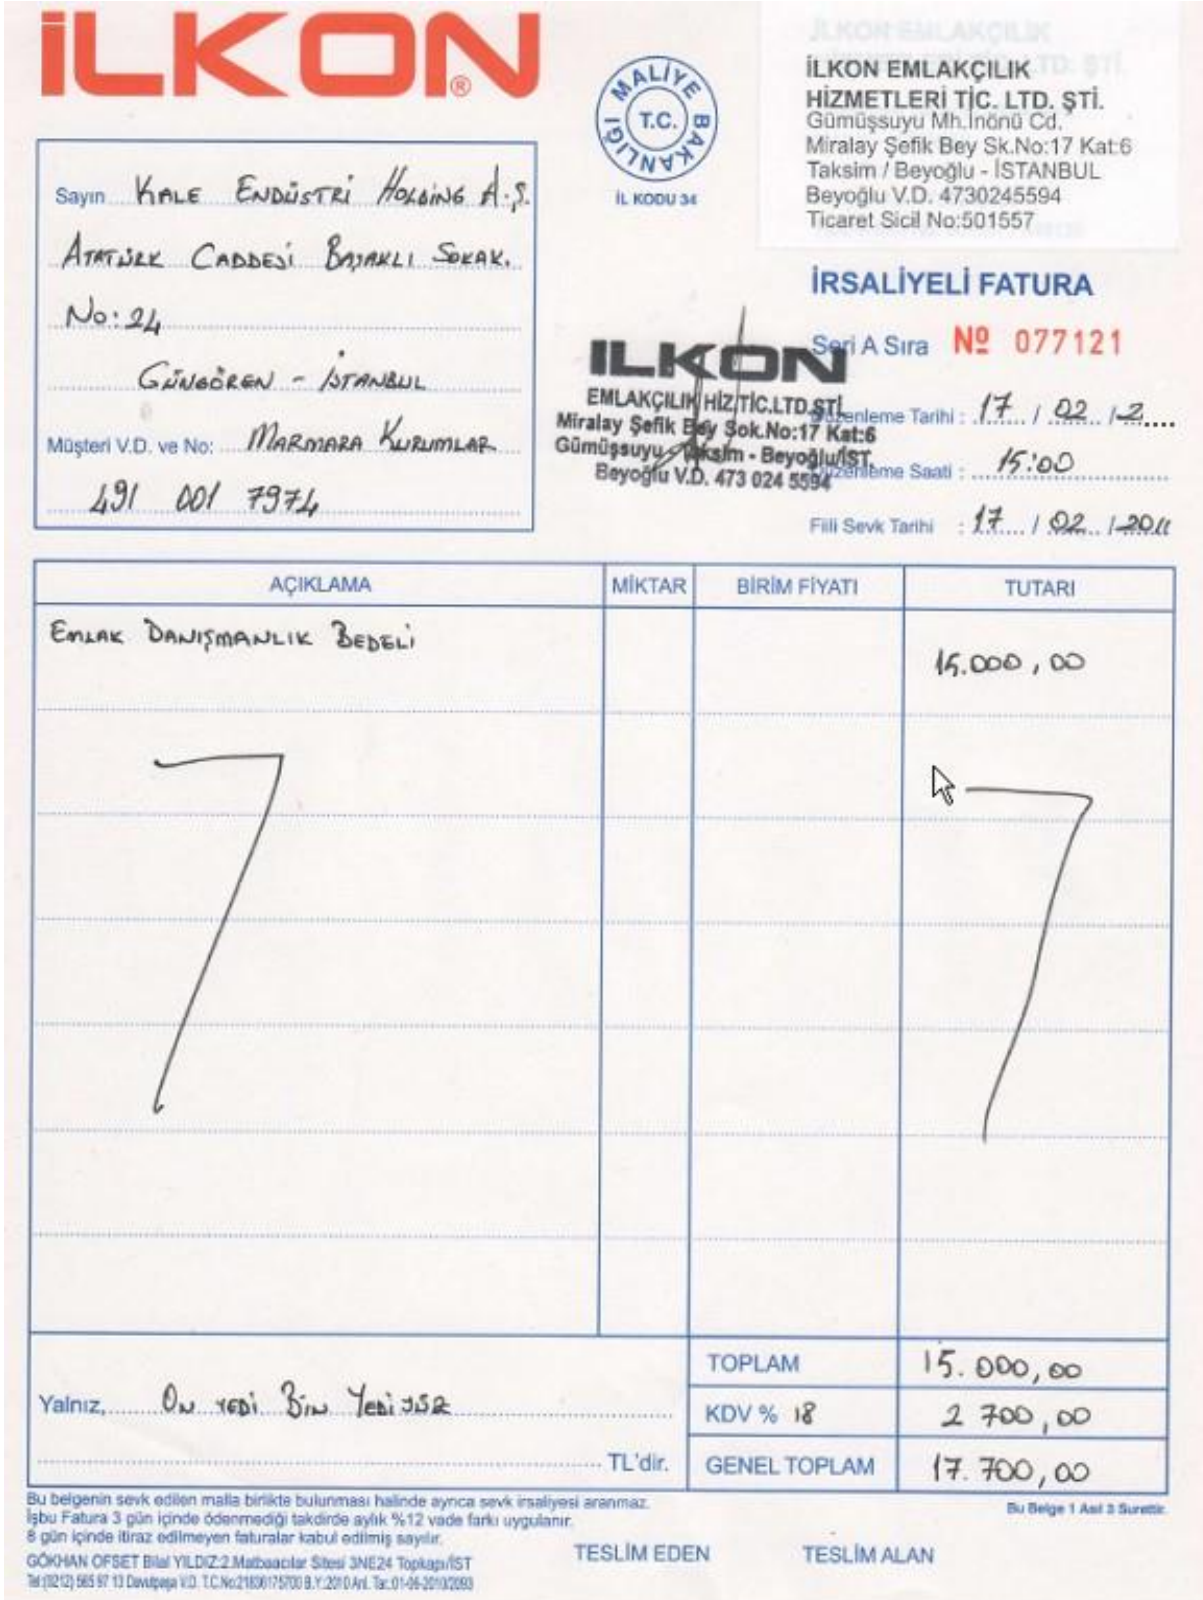 İLKON
®
MALİYE BAKANLIĞI
T.C.
İL KODU 34
İLKON EMLAKÇILIK
HİZMETLERİ TİC. LTD. ŞTİ.
Gümüşsuyu Mh.İnönü Cd.
Miralay Şefik Bey Sk.No:17 Kat:6
Taksim / Beyoğlu - İSTANBUL
Beyoğlu V.D. 4730245594
Ticaret Sicil No:501557
Sayın KALE ENDÜSTRİ HOLDİNG A.Ş.
ATATÜRK CADDESİ BAŞAKLI SOKAK.
No: 24
GÜNGÖREN - İSTANBUL
Müşteri V.D. ve No: MARMARA KURUMLAR
491 001 7974
İRSALİYELİ FATURA
Seri A Sıra Nº 077121
ILKON
EMLAKÇILIK HİZ.TİC.LTD.ŞTİ.
Miralay Şefik Bey Sok.No:17 Kat:6
Gümüşsuyu - Taksim - Beyoğlu/İST.
Beyoğlu V.D. 473 024 5594
Düzenleme Tarihi : 17 / 02 / 2....
Düzenleme Saati : 15:00
Fiili Sevk Tarihi : 17 / 02 / 2011
AÇIKLAMA MİKTAR BİRİM FİYATI TUTARI
EMLAK DANIŞMANLIK BEDELİ 15.000,00
TOPLAM 15.000,00
Yalnız, ON YEDİ BİN YEDİ YÜZ
KDV % 18 2 700,00
TL'dir. GENEL TOPLAM 17.700,00
Bu belgenin sevk edilen malla birlikte bulunması halinde ayrıca sevk irsaliyesi aranmaz.
İşbu Fatura 3 gün içinde ödenmediği takdirde aylık %12 vade farkı uygulanır.
8 gün içinde itiraz edilmeyen faturalar kabul edilmiş sayılır.
Bu Belge 1 Asıl 3 Surettir.
GÖKHAN OFSET Bilal YILDIZ:2.Matbaacılar Sitesi 3NE24 Topkapı/İST
Tel:(0212) 565 97 13 Davutpaşa V.D. T.C.No:21836175700 B.Y.:2010 Anl. Tar.:01-06-2010/2093
TESLİM EDEN TESLİM ALAN